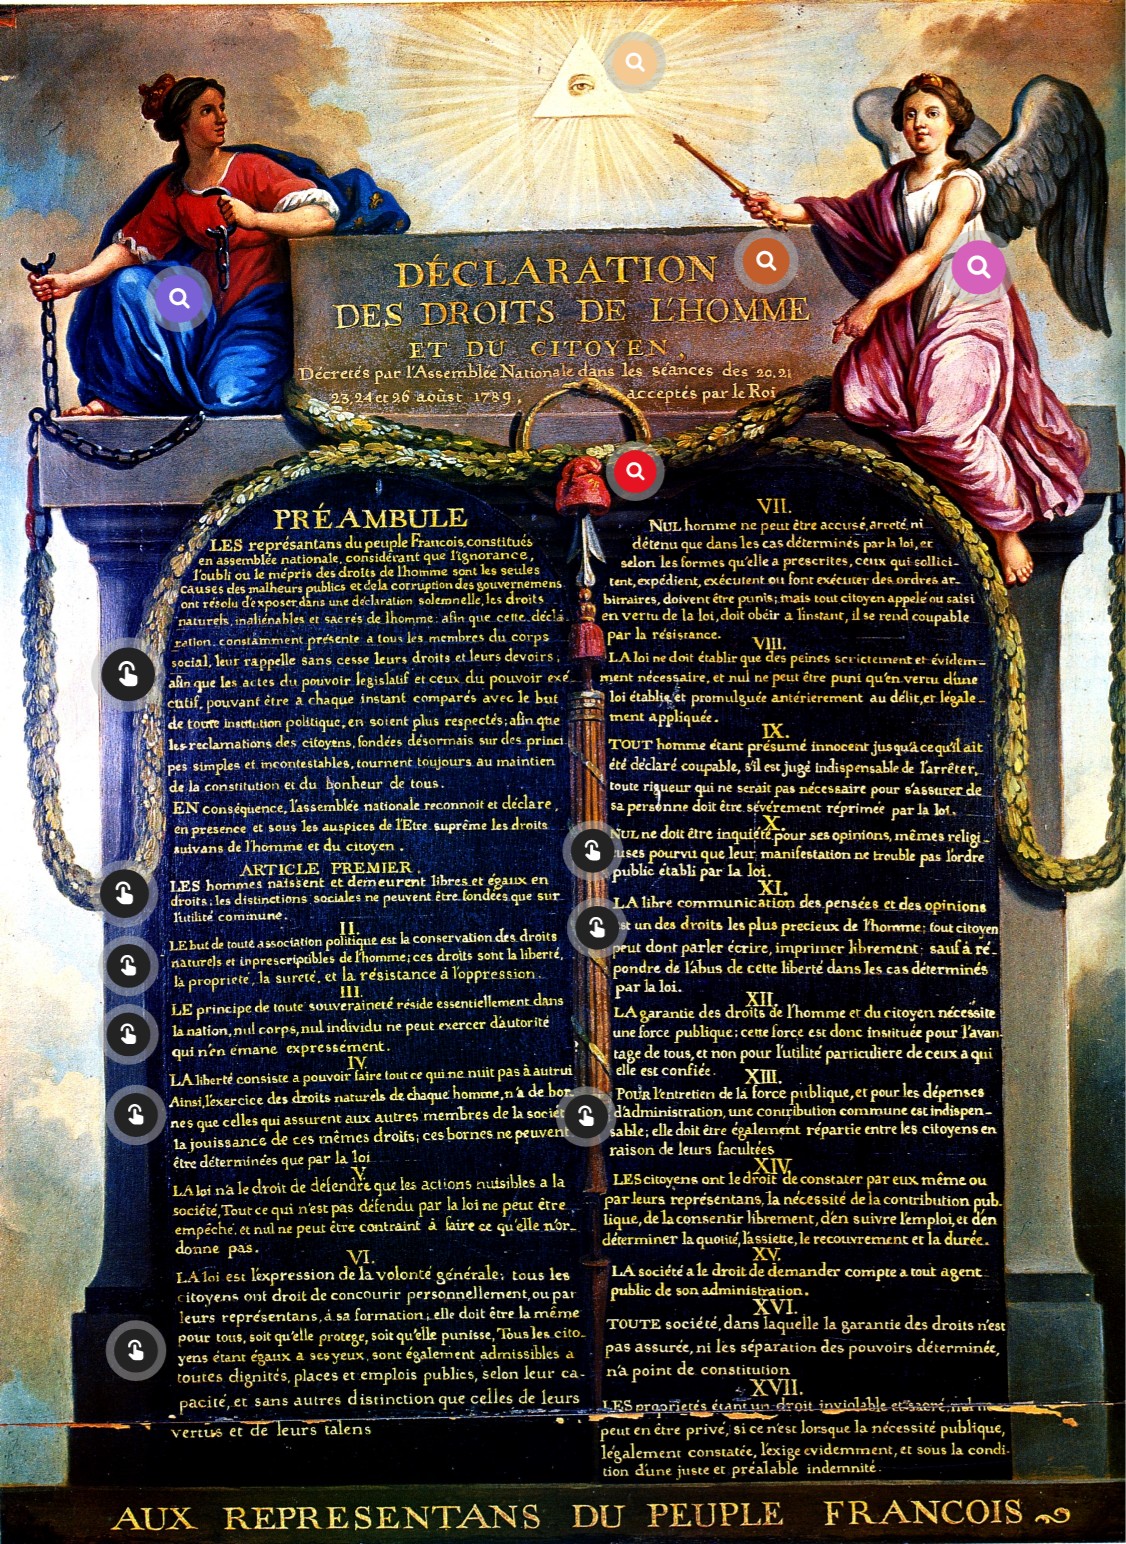 DÉCLARATION
DES DROITS DE L'HOMME
ET DU CITOYEN,
Décretés par l'Assemblée Nationale dans les séances des 20, 21
23, 24 et 26 aoûst 1789, acceptés par le Roi
PRÉAMBULE
LES représantans du peuple Francois, constitués
en assemblée nationale, considérant que l'ignorance,
l'oubli ou le mépris des droits de l'homme sont les seules
causes des malheurs publics et de la corruption des gouvernemens
ont résolu d'exposer, dans une déclaration solemnelle, les droits
naturels, inaliénables et sacrés de l'homme: afin que cette décla
ration, constamment présente a tous les membres du corps
social, leur rappelle sans cesse leurs droits et leurs devoirs;
afin que les actes du pouvoir legislatif et ceux du pouvoir exé-
cutif, pouvant être a chaque instant comparés avec le but
de toute institution politique, en soient plus respectés; afin que
les reclamations des citoyens, fondées désormais sur des princi
pes simples et incontestables, tournent toujours au maintien
de la constitution et du bonheur de tous.
EN conséquence, l'assemblée nationale reconnoit et déclare,
en presence et sous les auspices de l'Etre suprême les droits
suivans de l'homme et du citoyen.
ARTICLE PREMIER.
LES hommes naissent et demeurent libres et égaux en
droits; les distinctions sociales ne peuvent être fondées que sur
l'utilité commune.
II.
LE but de toute association politique est la conservation des droits
naturels et inprescriptibles de l'homme; ces droits sont la liberté,
la propriété, la sureté, et la résistance à l'oppression.
III.
LE principe de toute souveraineté réside essentiellement dans
la nation, nul corps, nul individu ne peut exercer d'autorité
qui n'en émane expressément.
IV.
LA liberté consiste a pouvoir faire tout ce qui ne nuit pas à autrui
Ainsi, l'exercice des droits naturels de chaque homme, n'a de bor-
nes que celles qui assurent aux autres membres de la sociét
la jouissance de ces mêmes droits; ces bornes ne peuvent
être déterminées que par la loi
V.
LA loi n'a le droit de défendre que les actions nuisibles a la
société, Tout ce qui n'est pas défendu par la loi ne peut être
empêché, et nul ne peut être contraint à faire ce qu'elle n'or-
donne pas.
VI.
LA loi est l'expression de la volonté générale; tous les
citoyens ont droit de concourir personnellement, ou par
leurs représentans, à sa formation; elle doit être la même
pour tous, soit qu'elle protege, soit qu'elle punisse, Tous les cito-
yens étant égaux a ses yeux, sont également admissibles a
toutes dignités, places et emplois publics, selon leur ca-
pacité, et sans autres distinction que celles de leurs
vertus et de leurs talens
VII.
NUL homme ne peut être accusé, arreté, ni
détenu que dans les cas déterminés par la loi, et
selon les formes qu'elle a prescrites, ceux qui sollici-
tent, expédient, exécutent ou font exécuter des ordres ar-
bitraires, doivent être punis; mais tout citoyen appelé ou saisi
en vertu de la loi, doit obéir a l'instant, il se rend coupable
par la résistance.
VIII.
LA loi ne doit établir que des peines strictement et évidem-
ment nécessaire, et nul ne peut être puni qu'en vertu d'une
loi établie, et promulguée antérierement au délit, et légale-
ment appliquée.
IX.
TOUT homme étant présumé innocent jusqu'à ce qu'il ait
été déclaré coupable, s'il est jugé indispensable de l'arrêter,
toute rigueur qui ne serait pas nécessaire pour s'assurer de
sa personne doit être sévérement réprimée par la loi.
X.
NUL ne doit être inquiété pour ses opinions, mêmes religi-
euses pourvu que leur manifestation ne trouble pas l'ordre
public établi par la loi.
XI.
LA libre communication des pensées et des opinions
est un des droits les plus precieux de l'homme; tout citoyen
peut dont parler écrire, imprimer librement; sauf à ré-
pondre de l'abus de cette liberté dans les cas déterminés
par la loi.
XII.
LA garantie des droits de l'homme et du citoyen nécessite
une force publique; cette force est donc instituée pour l'avan-
tage de tous, et non pour l'utilité particuliere de ceux a qui
elle est confiée.
XIII.
POUR l'entretien de la force publique, et pour les dépenses
d'administration, une contribution commune est indispen-
sable; elle doit être également répartie entre les citoyens en
raison de leurs facultées
XIV.
LES citoyens ont le droit de constater par eux même ou
par leurs représentans, la nécessité de la contribution pub-
lique, de la consentir librement, d'en suivre l'emploi, et d'en
déterminer la quotité, l'assiette, le recouvrement et la durée.
XV.
LA société a le droit de demander compte a tout agent
public de son administration.
XVI.
TOUTE société, dans laquelle la garantie des droits n'est
pas assurée, ni les séparation des pouvoirs déterminée,
n'a point de constitution
XVII.
LES propriétés étant un droit inviolable et sacré, nul ne
peut en être privé, si ce n'est lorsque la nécessité publique,
légalement constatée, l'exige evidemment, et sous la condi-
tion d'une juste et préalable indemnité.
AUX REPRESENTANS DU PEUPLE FRANCOIS